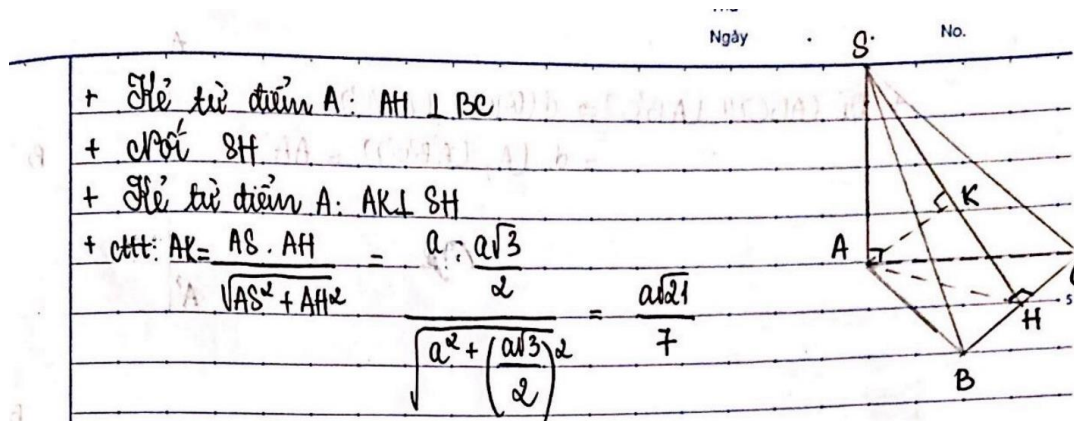 Ngày . No.
S
+ Kẻ từ điểm A: AH ⊥ BC
+ Nối SH
K
+ Kẻ từ điểm A: AK ⊥ SH
A
+ cttt: AK = AS . AH / √(AS² + AH²) = (a . a√3/2) / √(a² + (a√3/2)²) = a√21/7
H
B